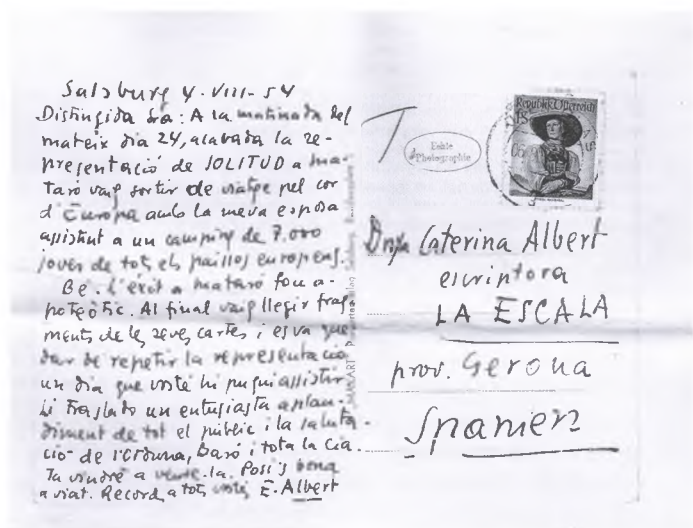 Salzburg 4-VIII-54
Distingida Sra: A la matinada del
mateix dia 24, acabada la re-
presentació de SOLITUD a ma-
taró vaig sortir de viatge pel cor
d'Europa amb la meva esposa
assistint a un camping de 7.000
joves de tots els països europens.
Be. L'exit a mataró fou a-
poteòtic. Al final vaig llegir frag-
ments de les seves cartes i es va que-
dar de repetir la representació
un dia que vosté hi pugui assistir.
Li traslado un entusiasta aplau-
diment de tot el públic i la saluta-
ció de l'Orduna, Baró i tota la Cia.
Ja vindré a veure-la. Posi's bona
aviat. Records a tots vostés E. Albert
T
Echte
Photographie
Republik Österreich
1S
Dnya Caterina Albert
escriptora
LA ESCALA
prov. Gerona
Spanien